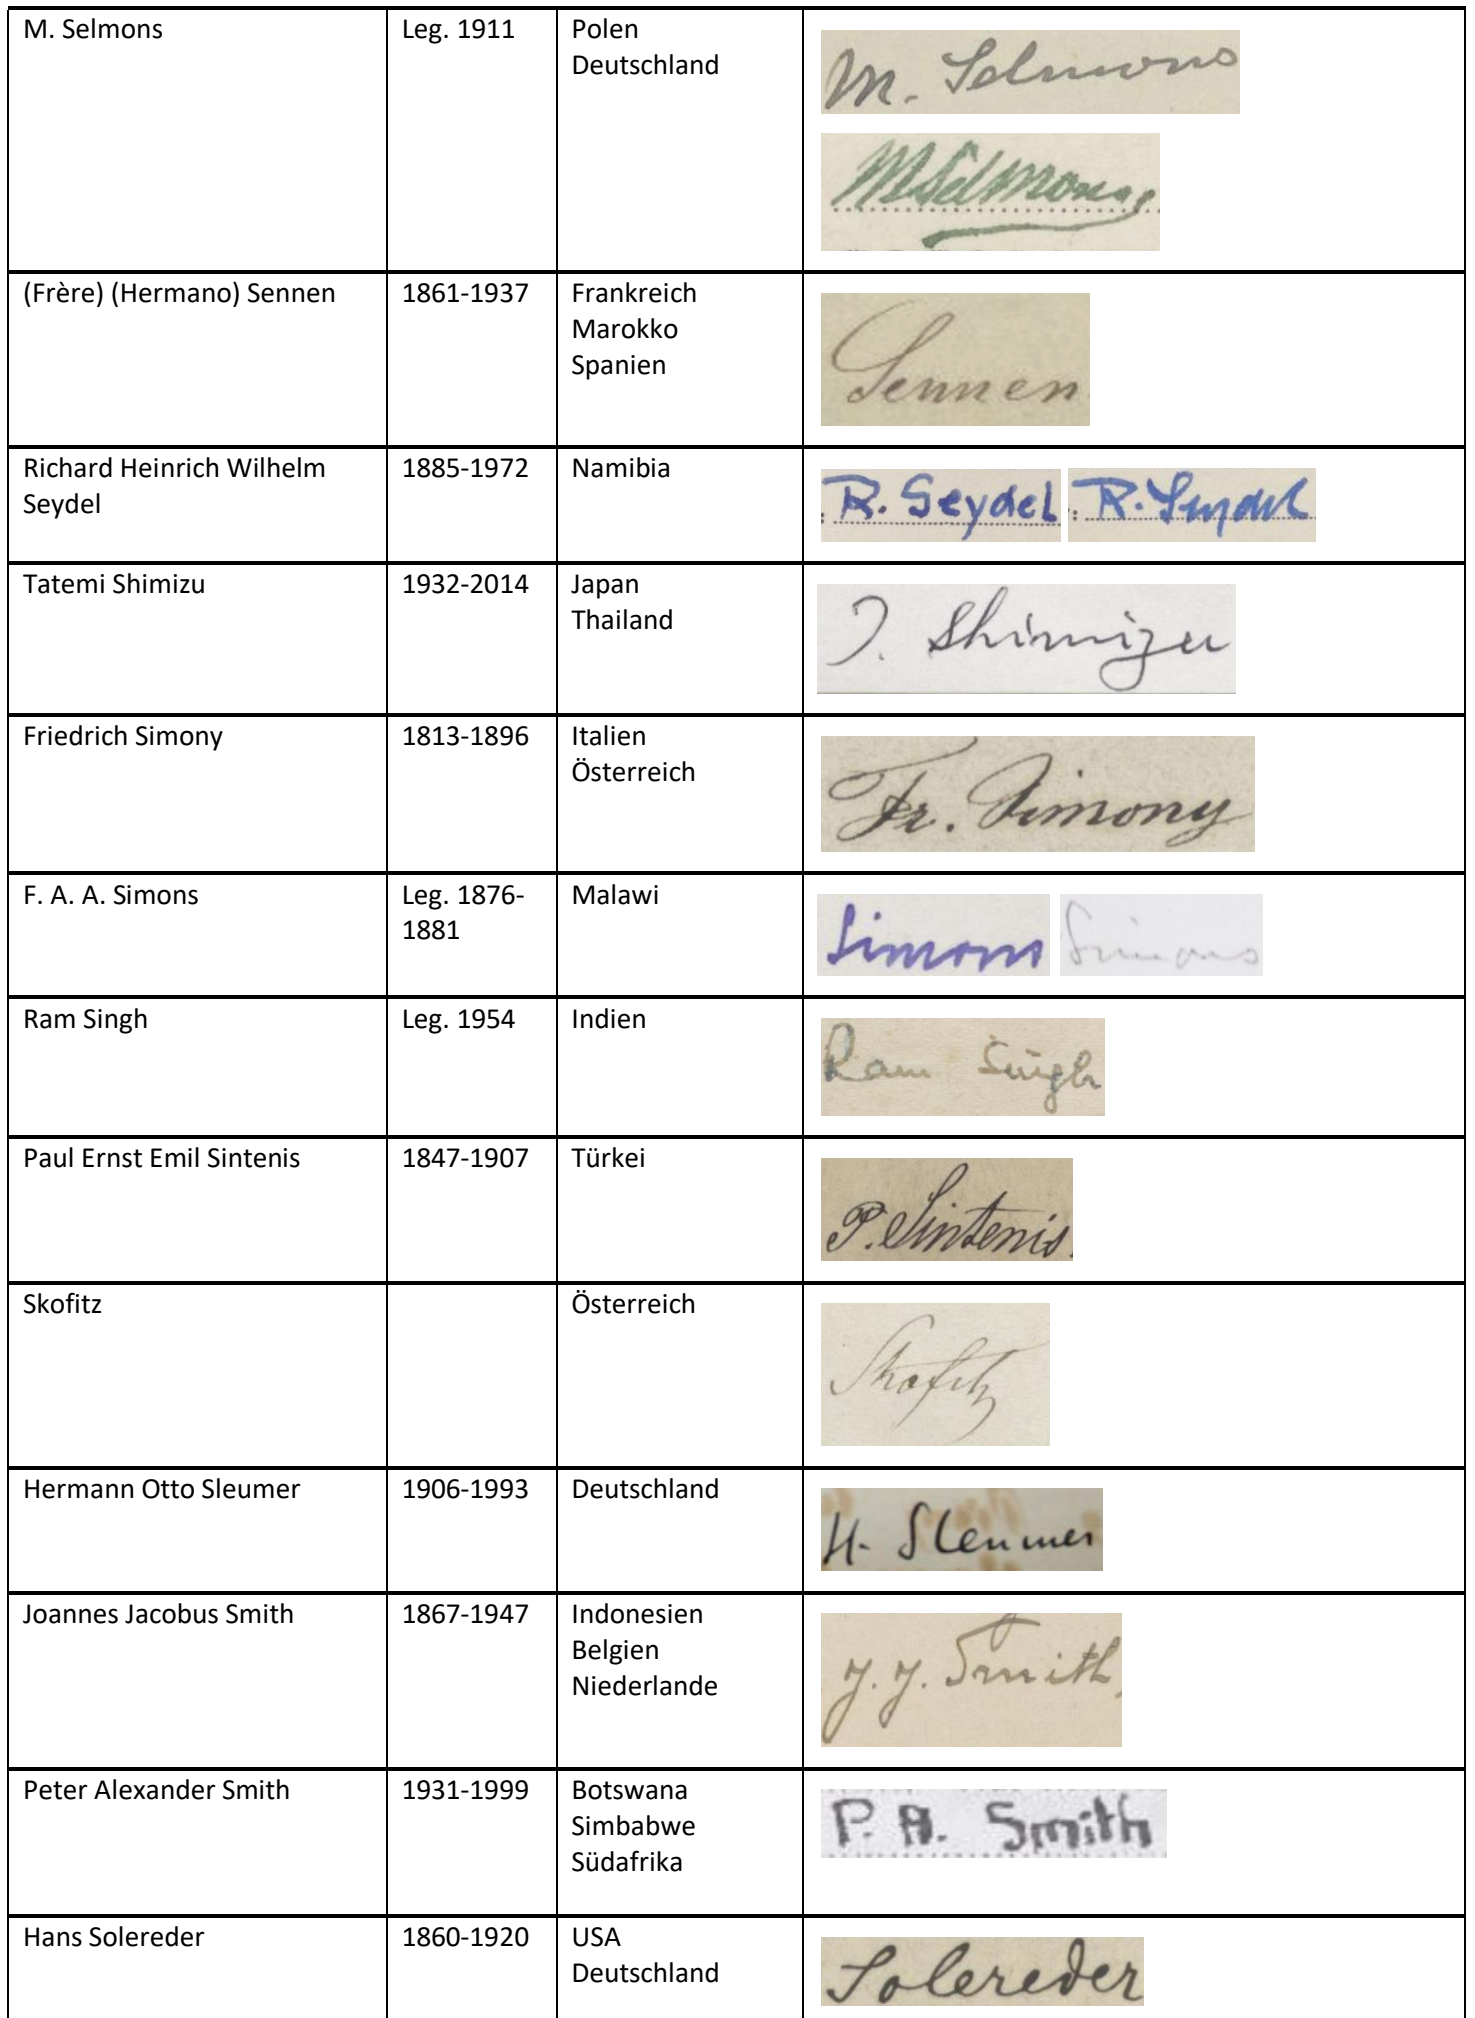 M. Selmons Leg. 1911 Polen
Deutschland
M. Selmons
MSelmons
(Frère) (Hermano) Sennen 1861-1937 Frankreich
Marokko
Spanien
Sennen
Richard Heinrich Wilhelm 1885-1972 Namibia
Seydel
R. Seydel R. Seydel
Tatemi Shimizu 1932-2014 Japan
Thailand
T. Shimizu
Friedrich Simony 1813-1896 Italien
Österreich
Fr. Simony
F. A. A. Simons Leg. 1876- Malawi
1881
Simons Simons
Ram Singh Leg. 1954 Indien
Ram Singh
Paul Ernst Emil Sintenis 1847-1907 Türkei
P. Sintenis.
Skofitz Österreich
Skofitz
Hermann Otto Sleumer 1906-1993 Deutschland
H. Sleumer
Joannes Jacobus Smith 1867-1947 Indonesien
Belgien
Niederlande
J. J. Smith
Peter Alexander Smith 1931-1999 Botswana
Simbabwe
Südafrika
P. A. Smith
Hans Solereder 1860-1920 USA
Deutschland
Solereder